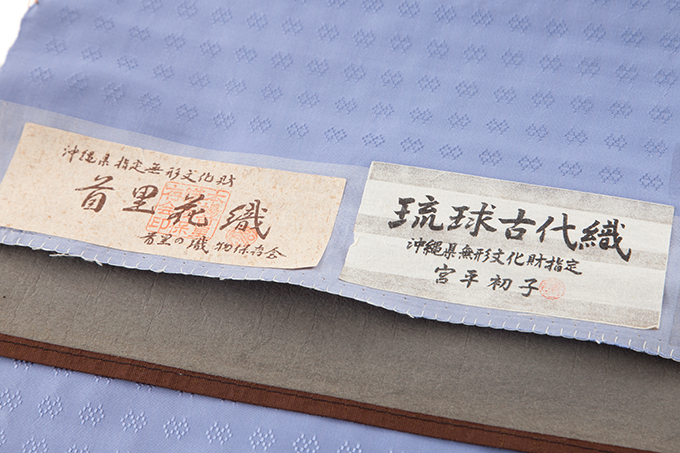 沖縄県指定無形文化財
首里花織
首里の織物保存会
琉球古代織
沖縄県無形文化財指定
宮平初子